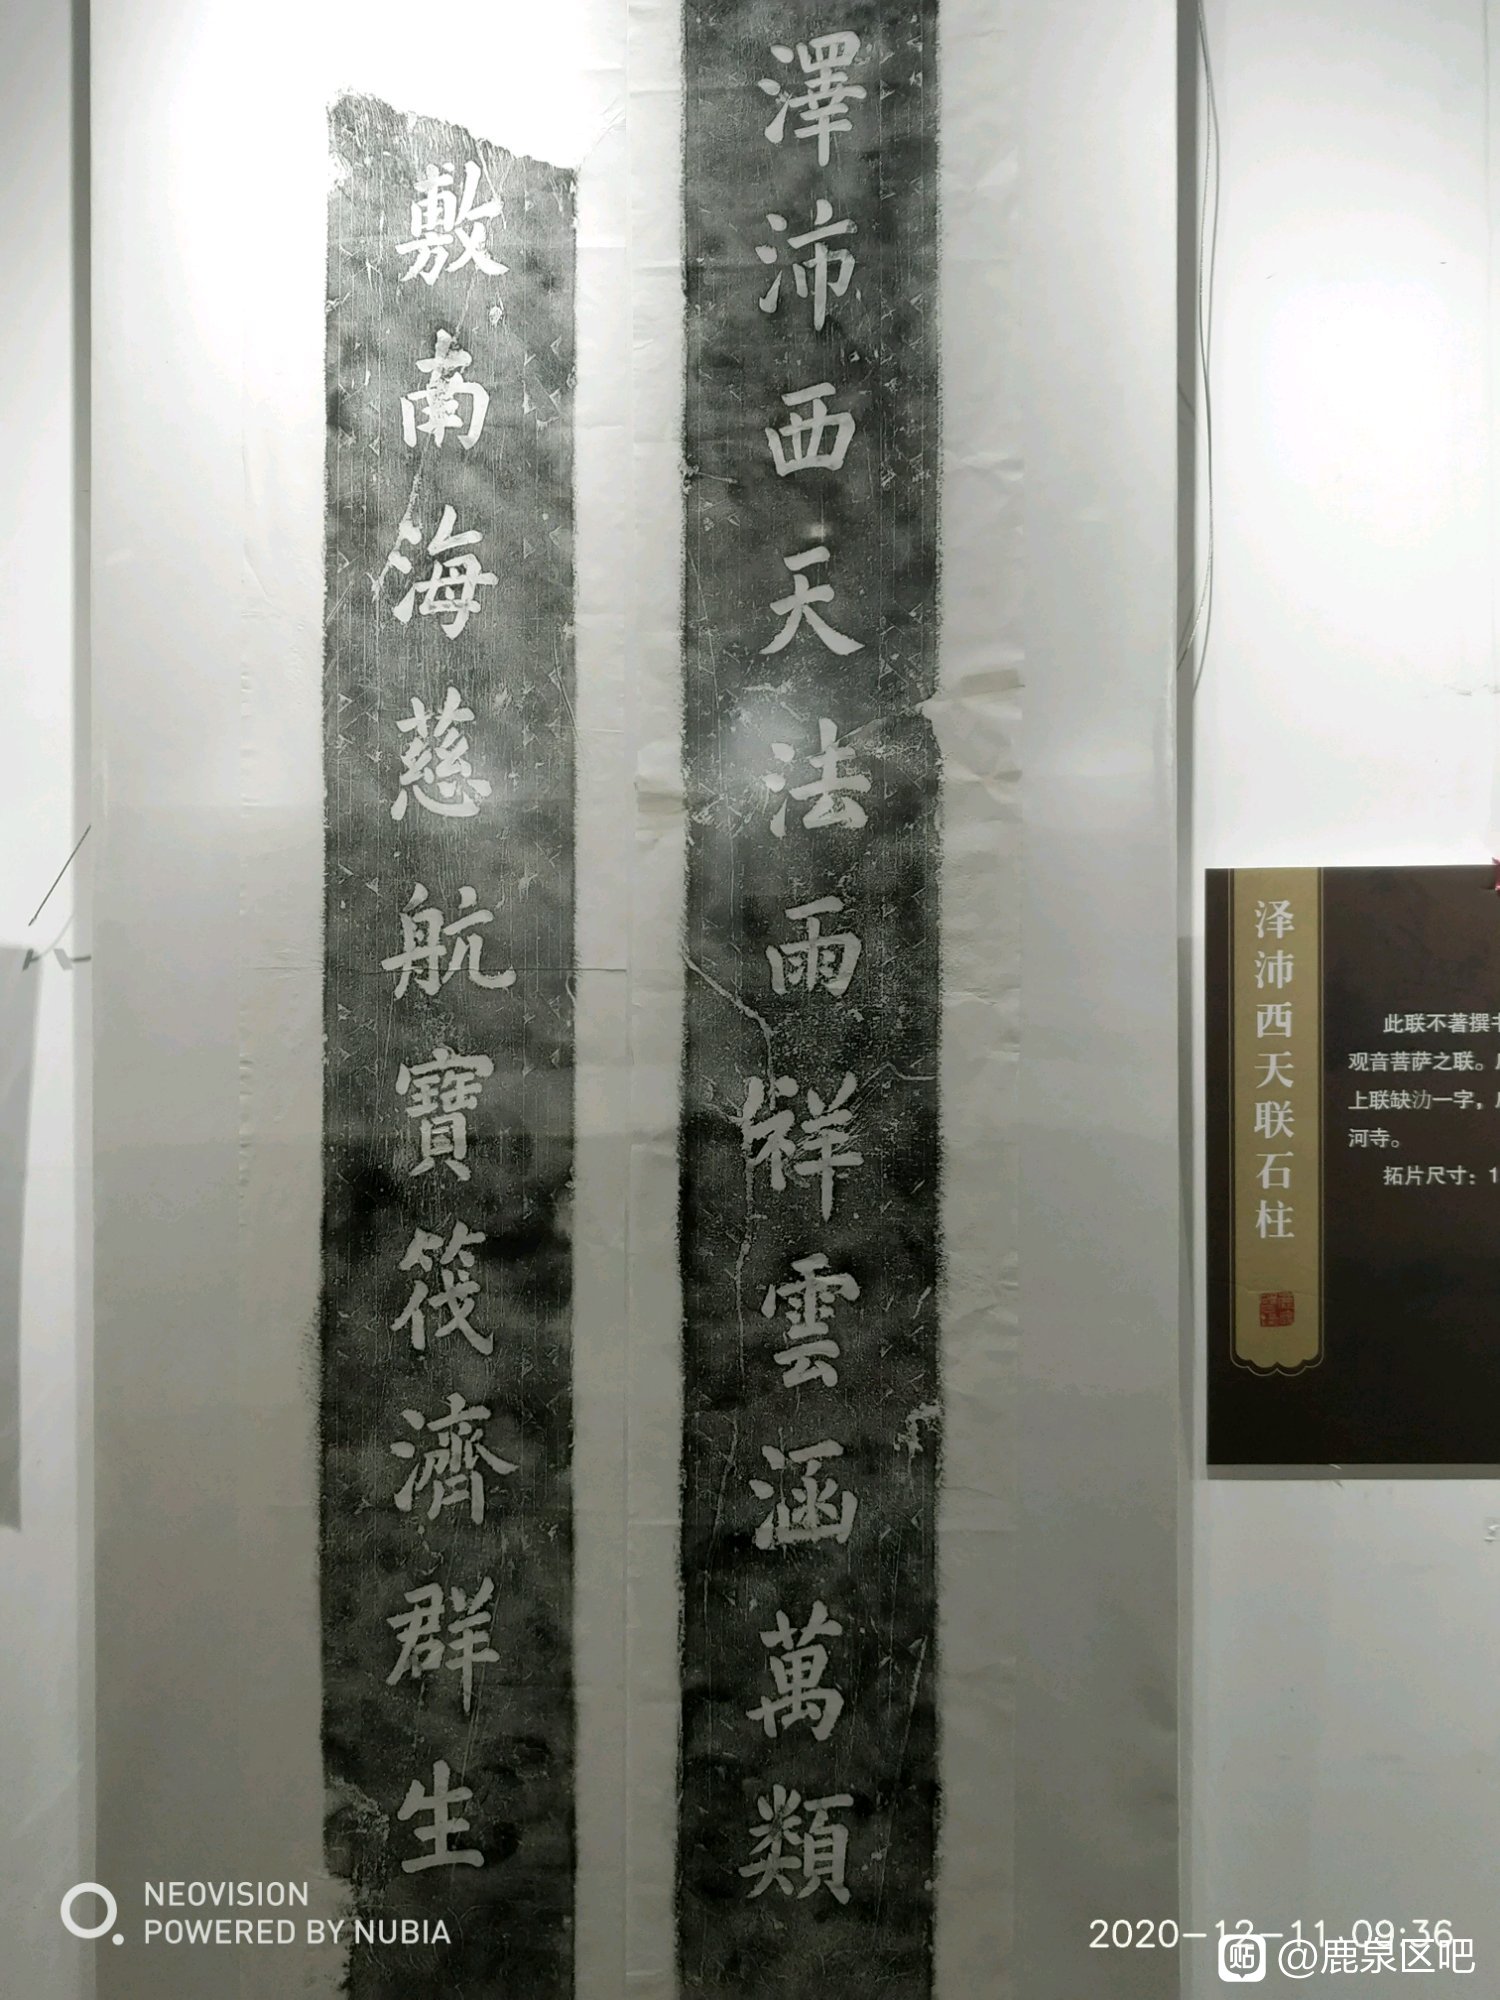 澤沛西天法雨祥雲涵萬類
敷南海慈航寶筏濟群生
泽沛西天联石柱
此联不著撰书
观音菩萨之联。
上联缺氻一字，
河寺。
拓片尺寸：1
NEOVISION
POWERED BY NUBIA
2020-12-11 09:36
贴 @鹿泉区吧